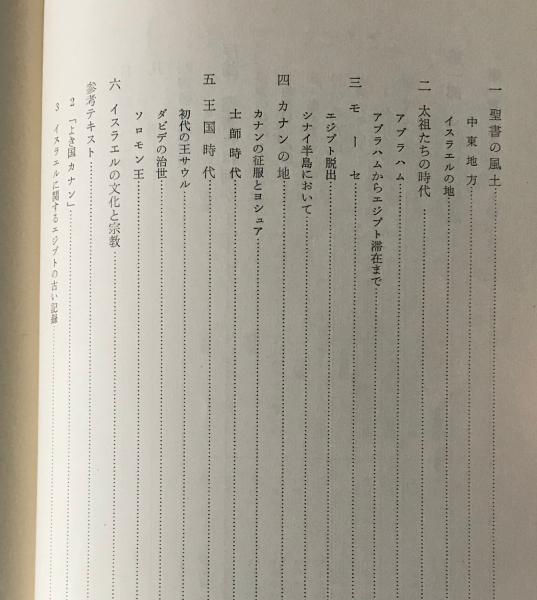 一 聖書の風土
中東地方
イスラエルの地
二 太祖たちの時代
アブラハム
アブラハムからエジプト滞在まで
三 モーセ
エジプト脱出
シナイ半島において
四 カナンの地
カナンの征服とヨシュア
士師時代
五 王国時代
初代の王サウル
ダビデの治世
ソロモン王
六 イスラエルの文化と宗教
参考テキスト
2 「よき国カナン」
3 イスラエルに関するエジプトの古い記録